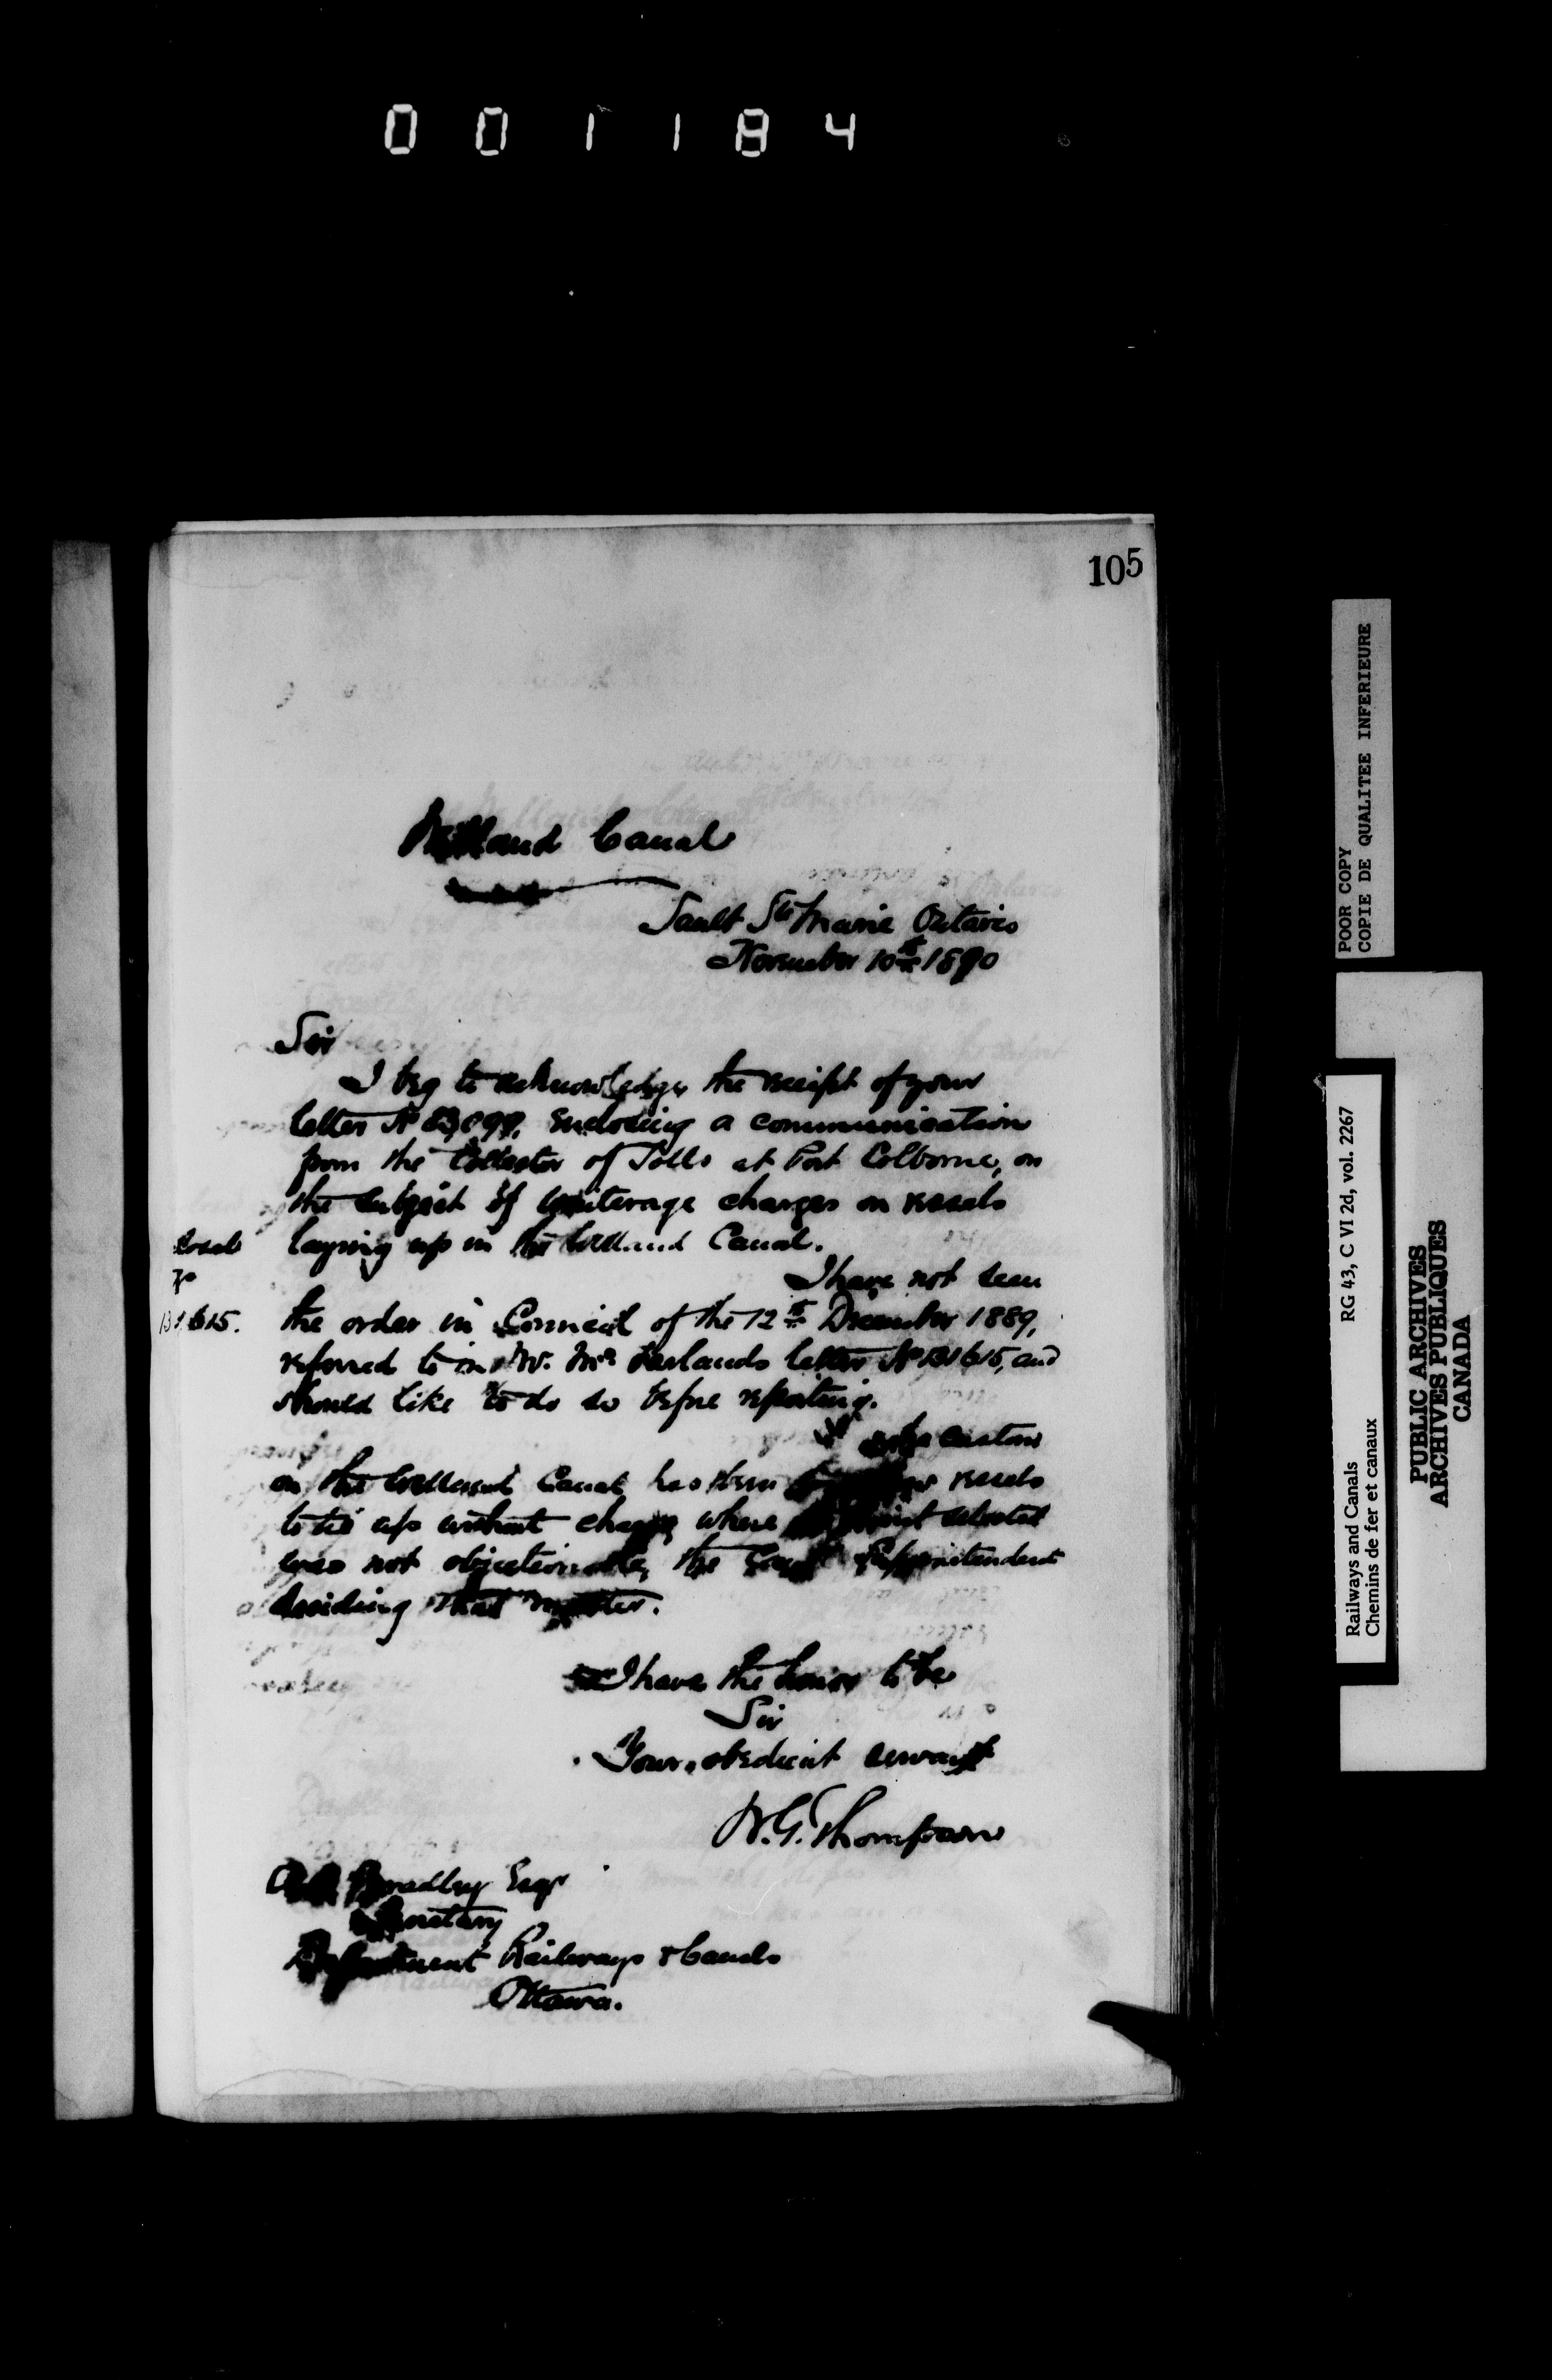 001184
105
Welland Canal
Sault Ste Marie Ontario
November 10th 1890
Sir
I beg to acknowledge the receipt of your
letter No enclosing a communication
from the Collector of Tolls at Port Colborne, on
the subject of winterage charges on vessels
laying up in the Welland Canal.
I have not seen
the order in Council of the 12th December 1889,
referred to in Mr. McFarlands letter No 131615, and
should like to do so before reporting.
131615.
The custom
on the Welland Canal has been vessels
to tie up without charge where point selected
was not objectionable, the Superintendent
deciding that matter.
I have the honor to be
Sir
Your obedient servant
W.G. Thompson
A. P. Bradley Esqr
Secretary
Department Railways & Canals
Ottawa.
POOR COPY
COPIE DE QUALITEE INFERIEURE
Railways and Canals RG 43, C VI 2d, vol. 2267
Chemins de fer et canaux
PUBLIC ARCHIVES
ARCHIVES PUBLIQUES
CANADA